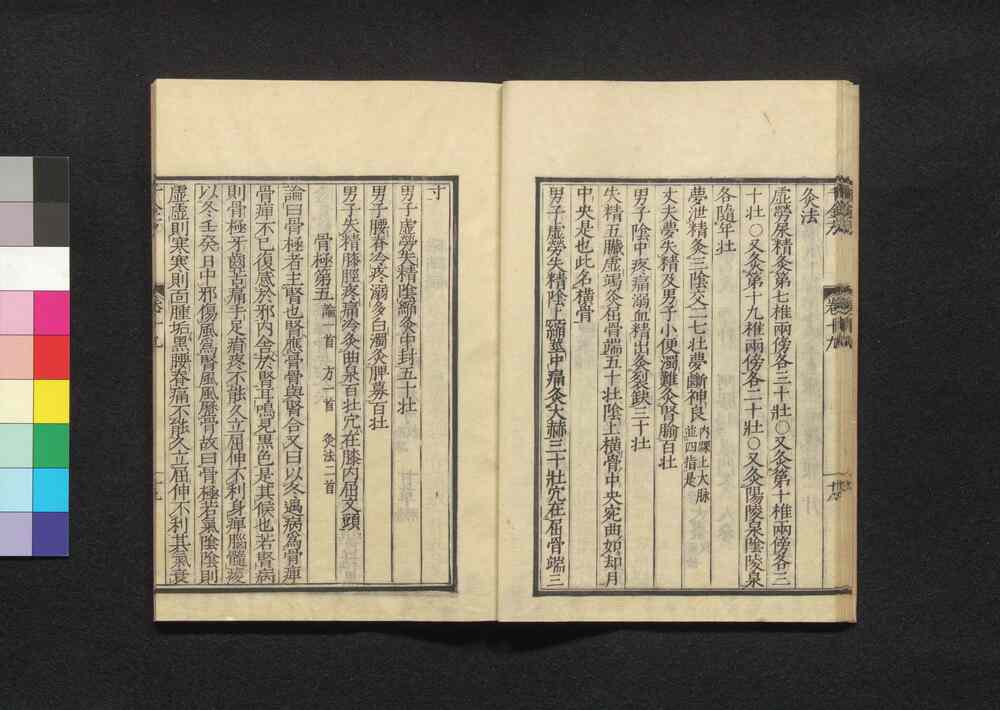 灸法
虛勞尿精灸第七椎兩傍各三十壯○又灸第十椎兩傍各三
十壯○又灸第十九椎兩傍各二十壯○又灸陽陵泉陰陵泉
各隨年壯
夢泄精灸三陰交二七壯夢斷神良內踝上大脉並四指是
丈夫夢失精及男子小便濁難灸腎腧百壯
男子陰中疼痛溺血精出灸列缺三十壯
失精五臟虛竭灸屈骨端五十壯陰上橫骨中央宛曲如却月
中央是也此名橫骨
男子虛勞失精陰上縮莖中痛灸大赫三十壯穴在屈骨端三
寸
男子虛勞失精陰縮灸中封五十壯
男子腰脊冷疼溺多白濁灸脾募百壯
男子失精膝脛疼痛冷灸曲泉百壯穴在膝內屈文頭
骨極第五 論一首 方一首 灸法二首
論曰骨極者主腎也腎應骨骨與腎合又曰以冬遇病爲骨痺
骨痺不已復感於邪內舍於腎耳鳴見黑色是其候也若腎病
則骨極牙齒苦痛手足㾓疼不能久立屈伸不利身痺腦髓痠
以冬壬癸日中邪傷風爲腎風風歷骨故曰骨極若氣陰陰則
虛虛則寒寒則面腫垢黑腰脊痛不能久立屈伸不利其氣衰
卷十九